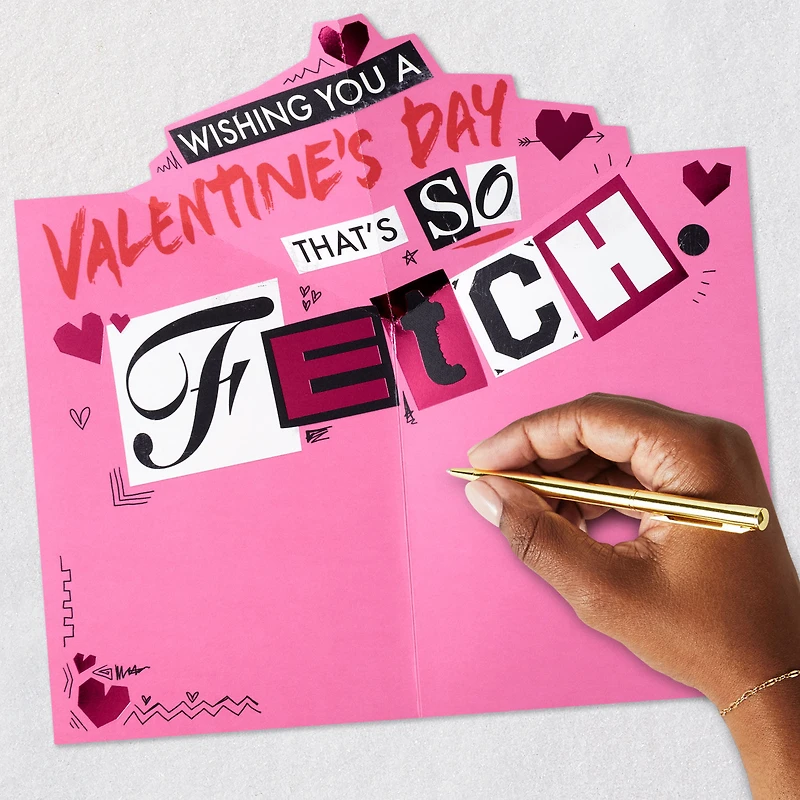 WISHING YOU A
VALENTINE'S DAY
THAT'S SO
FEtCH.